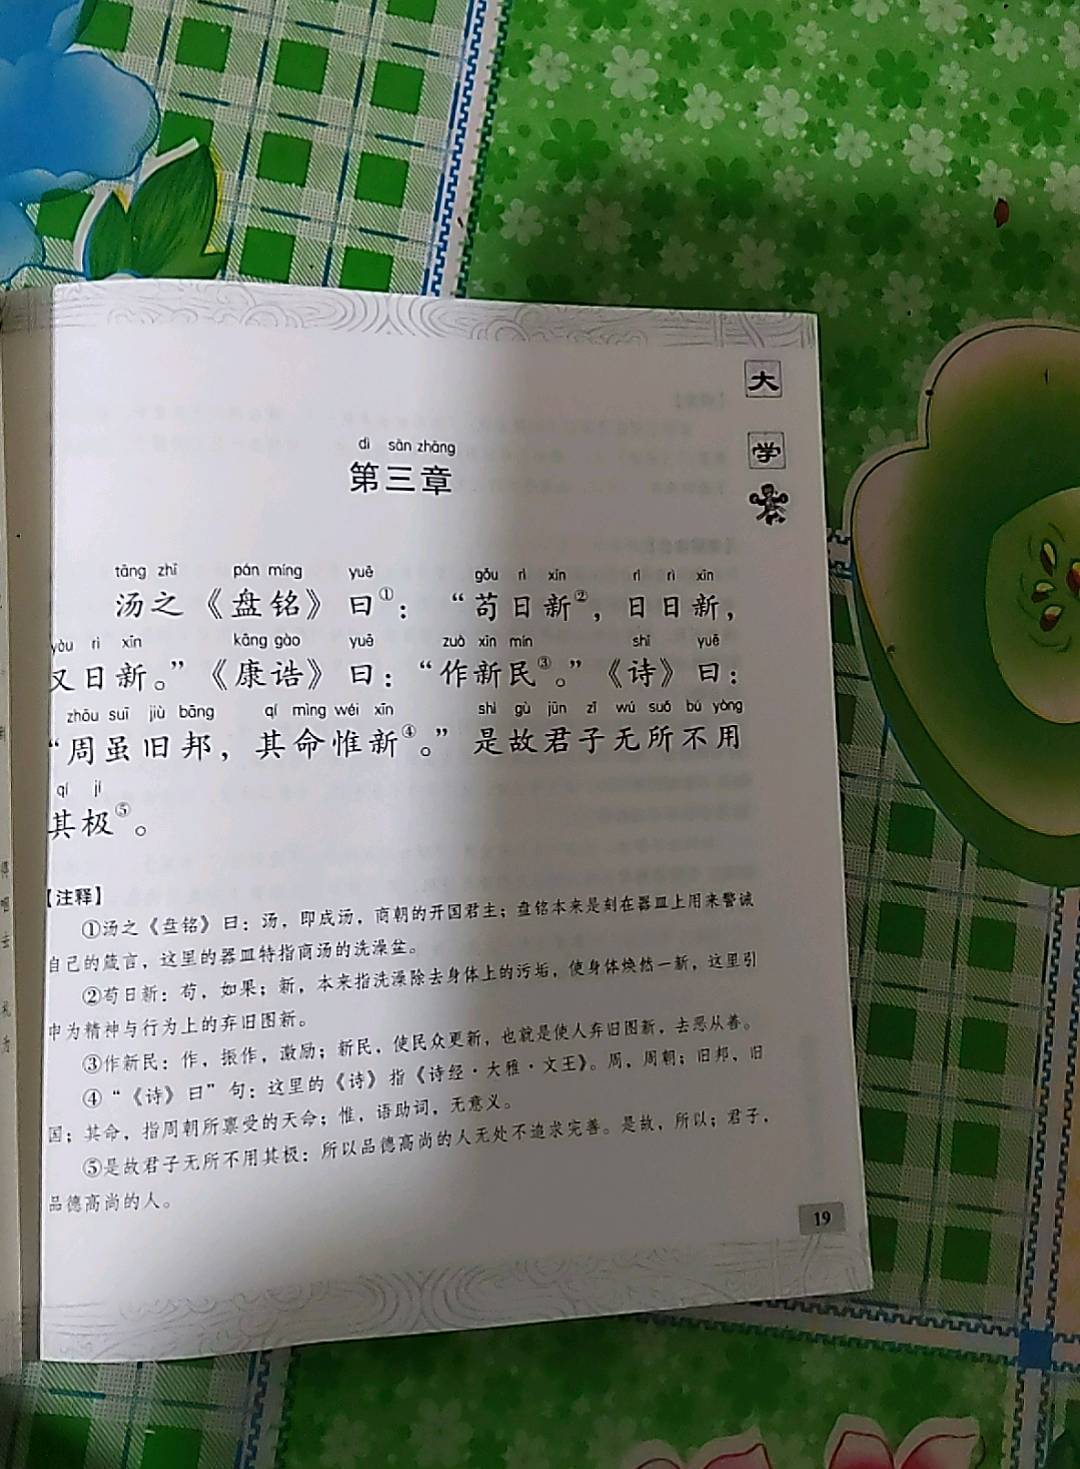 大
学
dì sān zhāng
第三章
tāng zhī pán míng yuē gǒu rì xīn rì rì xīn
汤之《盘铭》曰①：“苟日新②，日日新，
yòu rì xīn kāng gào yuē zuò xīn mín shī yuē
又日新。”《康诰》曰：“作新民③。”《诗》曰：
zhōu suī jiù bāng qí mìng wéi xīn shì gù jūn zǐ wú suǒ bú yòng
“周虽旧邦，其命惟新④。”是故君子无所不用
qí jí
其极⑤。
【注释】
①汤之《盘铭》曰：汤，即成汤，商朝的开国君主；盘铭本来是刻在器皿上用来警诫
自己的箴言，这里的器皿特指商汤的洗澡盆。
②苟日新：苟，如果；新，本来指洗澡除去身体上的污垢，使身体焕然一新，这里引
申为精神与行为上的弃旧图新。
③作新民：作，振作，激励；新民，使民众更新，也就是使人弃旧图新，去恶从善。
④“《诗》曰”句：这里的《诗》指《诗经·大雅·文王》。周，周朝；旧邦，旧
国；其命，指周朝所禀受的天命；惟，语助词，无意义。
⑤是故君子无所不用其极：所以品德高尚的人无处不追求完善。是故，所以；君子，
品德高尚的人。
19